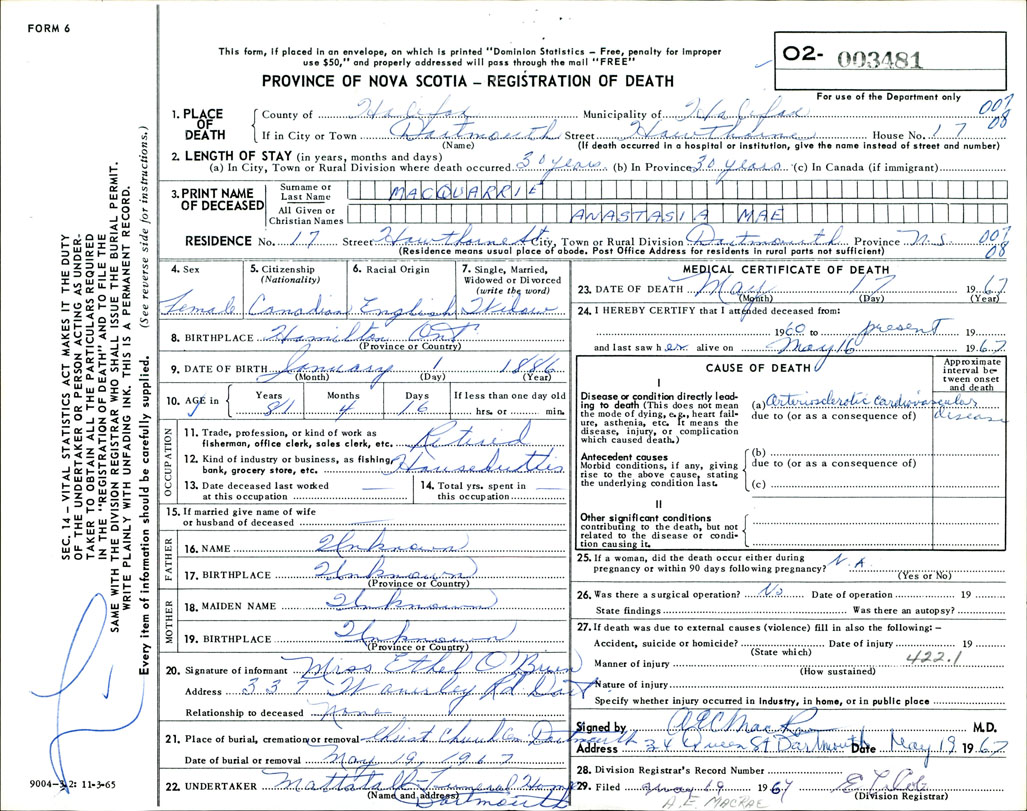 FORM 6
This form, if placed in an envelope, on which is printed "Dominion Statistics – Free, penalty for improper
use $50," and properly addressed will pass through the mail "FREE"
PROVINCE OF NOVA SCOTIA – REGISTRATION OF DEATH
02- 003481
For use of the Department only
1. PLACE OF DEATH
County of Halifax Municipality of Halifax 007
If in City or Town Dartmouth Street Hawthorne House No. 17 08
(Name) (If death occurred in a hospital or institution, give the name instead of street and number)
2. LENGTH OF STAY (in years, months and days)
(a) In City, Town or Rural Division where death occurred 30 years (b) In Province 30 years (c) In Canada (if immigrant)
3. PRINT NAME OF DECEASED
Surname or Last Name MACQUARRIE
All Given or Christian Names ANASTASIA MAE
RESIDENCE No. 17 Street Hawthorne St City, Town or Rural Division Dartmouth Province N.S. 007
(Residence means usual place of abode. Post Office Address for residents in rural parts not sufficient) 08
4. Sex Female
5. Citizenship (Nationality) Canadian
6. Racial Origin English
7. Single, Married, Widowed or Divorced (write the word) Widow
8. BIRTHPLACE Hamilton Ont
(Province or Country)
9. DATE OF BIRTH January 1 1886
(Month) (Day) (Year)
10. AGE in Years 81 Months 4 Days 16 If less than one day old hrs. or min.
OCCUPATION
11. Trade, profession, or kind of work as fisherman, office clerk, sales clerk, etc. Retired
12. Kind of industry or business, as fishing, bank, grocery store, etc. Houseduties
13. Date deceased last worked at this occupation —
14. Total yrs. spent in this occupation —
15. If married give name of wife or husband of deceased —
FATHER
16. NAME Unknown
17. BIRTHPLACE Unknown
(Province or Country)
MOTHER
18. MAIDEN NAME Unknown
19. BIRTHPLACE Unknown
(Province or Country)
20. Signature of informant Miss Ethel O'Brien
Address 337 Rd Dart
Relationship to deceased None
21. Place of burial, cremation or removal Christ Church Dartmouth
Date of burial or removal May 19, 1967
22. UNDERTAKER Mattatall Funeral Home
(Name and address) Dartmouth
MEDICAL CERTIFICATE OF DEATH
23. DATE OF DEATH May 17 1967
(Month) (Day) (Year)
24. I HEREBY CERTIFY that I attended deceased from:
1960 to present 19
and last saw her alive on May 16 1967
CAUSE OF DEATH
Approximate interval between onset and death
I
Disease or condition directly leading to death (This does not mean the mode of dying, e.g., heart failure, asthenia, etc. It means the disease, injury, or complication which caused death.)
(a) Arteriosclerotic cardiovascular disease
due to (or as a consequence of)
Antecedent causes
Morbid conditions, if any, giving rise to the above cause, stating the underlying condition last.
(b)
due to (or as a consequence of)
(c)
II
Other significant conditions
contributing to the death, but not related to the disease or condition causing it.
25. If a woman, did the death occur either during pregnancy or within 90 days following pregnancy? N.A.
(Yes or No)
26. Was there a surgical operation? No Date of operation 19
State findings Was there an autopsy?
27. If death was due to external causes (violence) fill in also the following: –
Accident, suicide or homicide? Date of injury 19
(State which) 422.1
Manner of injury
(How sustained)
Nature of injury
Specify whether injury occurred in industry, in home, or in public place
Signed by AEC MacRae M.D.
Address 34 Queen St Dartmouth Date May 19 1967
28. Division Registrar's Record Number
29. Filed May 19 1967
(Division Registrar)
A.E. MACRAE
SEC. 14 – VITAL STATISTICS ACT MAKES IT THE DUTY
OF THE UNDERTAKER OR PERSON ACTING AS UNDER-
TAKER TO OBTAIN ALL THE PARTICULARS REQUIRED
IN THE "REGISTRATION OF DEATH" AND TO FILE THE
SAME WITH THE DIVISION REGISTRAR WHO SHALL ISSUE THE BURIAL PERMIT.
WRITE PLAINLY WITH UNFADING INK. THIS IS A PERMANENT RECORD.
Every item of information should be carefully supplied. (See reverse side for instructions.)
9004-3.2: 11-3-65